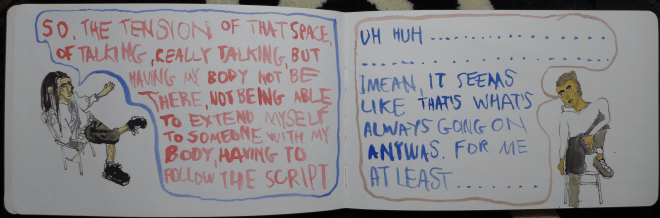 SO, THE TENSION OF THAT SPACE,
OF TALKING, REALLY TALKING, BUT
HAVING MY BODY NOT BE
THERE, NOT BEING ABLE
TO EXTEND MYSELF
TO SOMEONE WITH MY
BODY, HAVING TO
FOLLOW THE SCRIPT
UH HUH ....................
....................
I MEAN, IT SEEMS
LIKE THAT'S WHAT'S
ALWAYS GOING ON
ANYWAS. FOR ME
AT LEAST .......